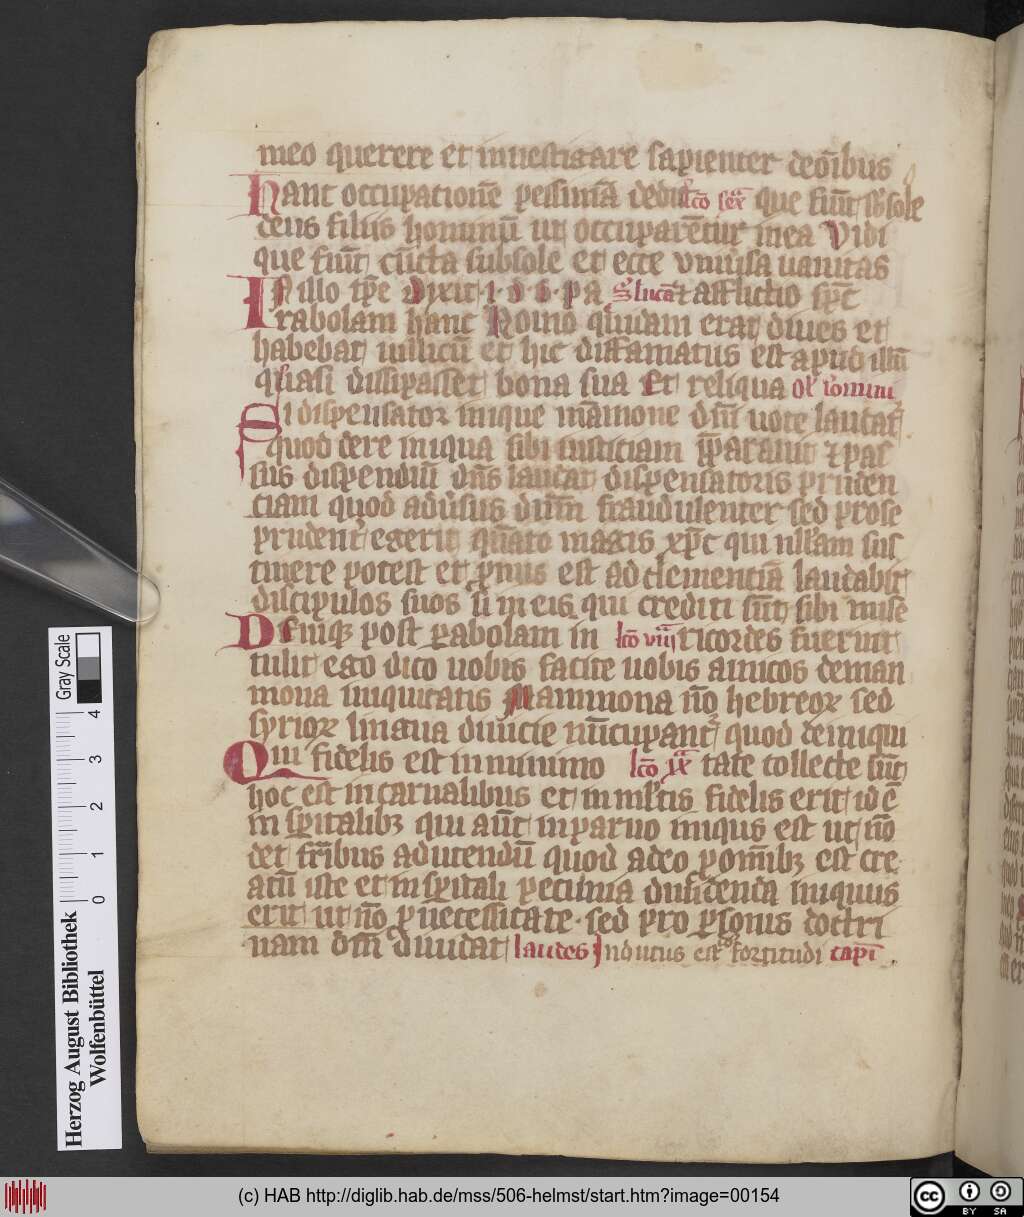 meo querere et inuestigare sapienter deōibus
hanc occupationē pessimā dedit lc̄o sexᵃ que fiūt sb sole
deus filiis hominū ut occuparētur in ea Vidi
que fiūt cūcta sub sole et ecce vniūsa uanitas
In illo tp̄e Dixit i d s pa s. lucā et afflictio sp̄c
rabolam hanc Homo quidam erat diues et
habebat uillicū et hic diffamatus est apud illū
quasi dissipasset bona sua Et reliqua
Si dispensator inique māmone dn̄i uoce laudat
quod de re iniqua sibi iusticiam p̄pararit et pas
sus dispendiū dn̄s laudat dispensatoris pruden
ciam quod adūsus dn̄m fraudulenter sed pro se
prudent egerit quāto magis xp̄c qui nllam sus
tinere potest et pnus est ad clementiā laudabit
discipulos suos si in eis qui credituri sūt sibi mise
Deniq post parabolam in lc̄o viij ricordes fuerint
tulit ego dico uobis facite uobis amicos de man
mona iniquitatis Mammona nō hebreor sed
syrior lingua diuicie nūcupant quod de iniqui
Qui fidelis est in minimo lc̄o ix tate collecte sūt
hoc est in carnalibus et in mltis fidelis erit id ē
in sp̄italibꝫ qui aūt in paruo iniqus est ut nō
det fr̄ibus ad utendū quod a deo pomībꝫ est cre
atū iste et in sp̄itali pecunia diuidenda iniquus
erit ut nō p necessitate sed pro psonis doctri
nam dn̄i diuidat laudes Indutus est dn̄s fortitudi capī
Gray Scale
0 1 2 3 4
Herzog August Bibliothek
Wolfenbüttel
(c) HAB http://diglib.hab.de/mss/506-helmst/start.htm?image=00154
cc BY SA